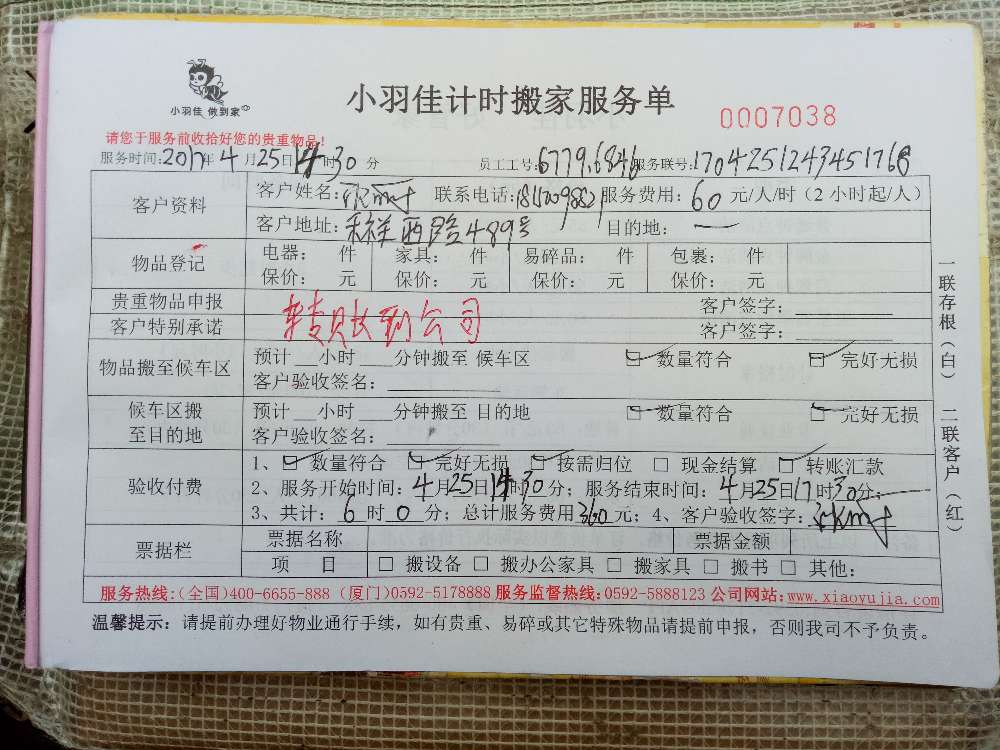 小羽佳 做到家
小羽佳计时搬家服务单
0007038
请您于服务前收拾好您的贵重物品!
服务时间:2017年4月25日14时30分 员工工号:6779.6846 服务联号:1704251243451768
客户资料
客户姓名: 联系电话: 服务费用:60元/人/时（2小时起/人）
客户地址:禾祥西路489号 目的地:一
物品登记
电器: 件 家具: 件 易碎品: 件 包裹: 件
保价: 元 保价: 元 保价: 元 保价: 元
贵重物品申报 客户签字:
客户特别承诺 转账到公司 客户签字:
物品搬至候车区
预计__小时__分钟搬至 候车区 数量符合 完好无损
客户验收签名:
候车区搬至目的地
预计__小时__分钟搬至 目的地 数量符合 完好无损
客户验收签名:
验收付费
1、数量符合 完好无损 按需归位 □ 现金结算 转账汇款
2、服务开始时间:4月25日14时30分；服务结束时间:4月25日17时30分；
3、共计:6时0分；总计服务费用360元；4、客户验收签字:
票据栏
票据名称 票据金额
项 目 □ 搬设备 □ 搬办公家具 □ 搬家具 □ 搬书 □ 其他:
服务热线:(全国)400-6655-888 (厦门)0592-5178888 服务监督热线:0592-5888123 公司网站:www.xiaoyujia.com
温馨提示: 请提前办理好物业通行手续，如有贵重、易碎或其它特殊物品请提前申报，否则我司不予负责。
一联存根（白） 二联客户（红）